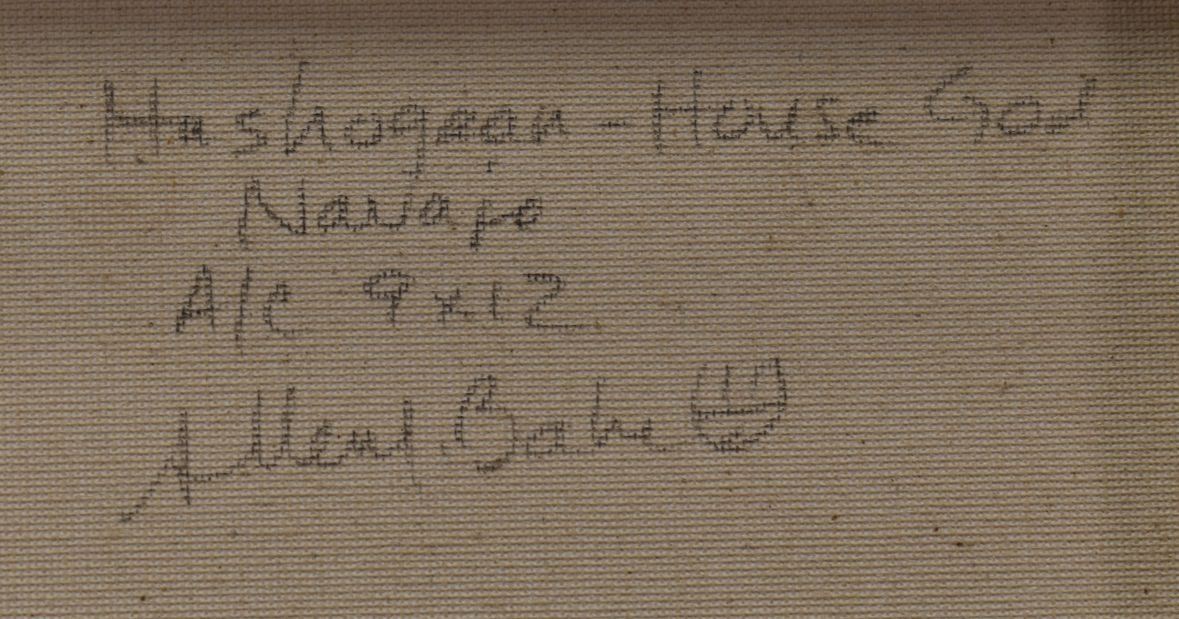 Hashogaon - House God
Navajo
A/C 9x12
Allen Bahe